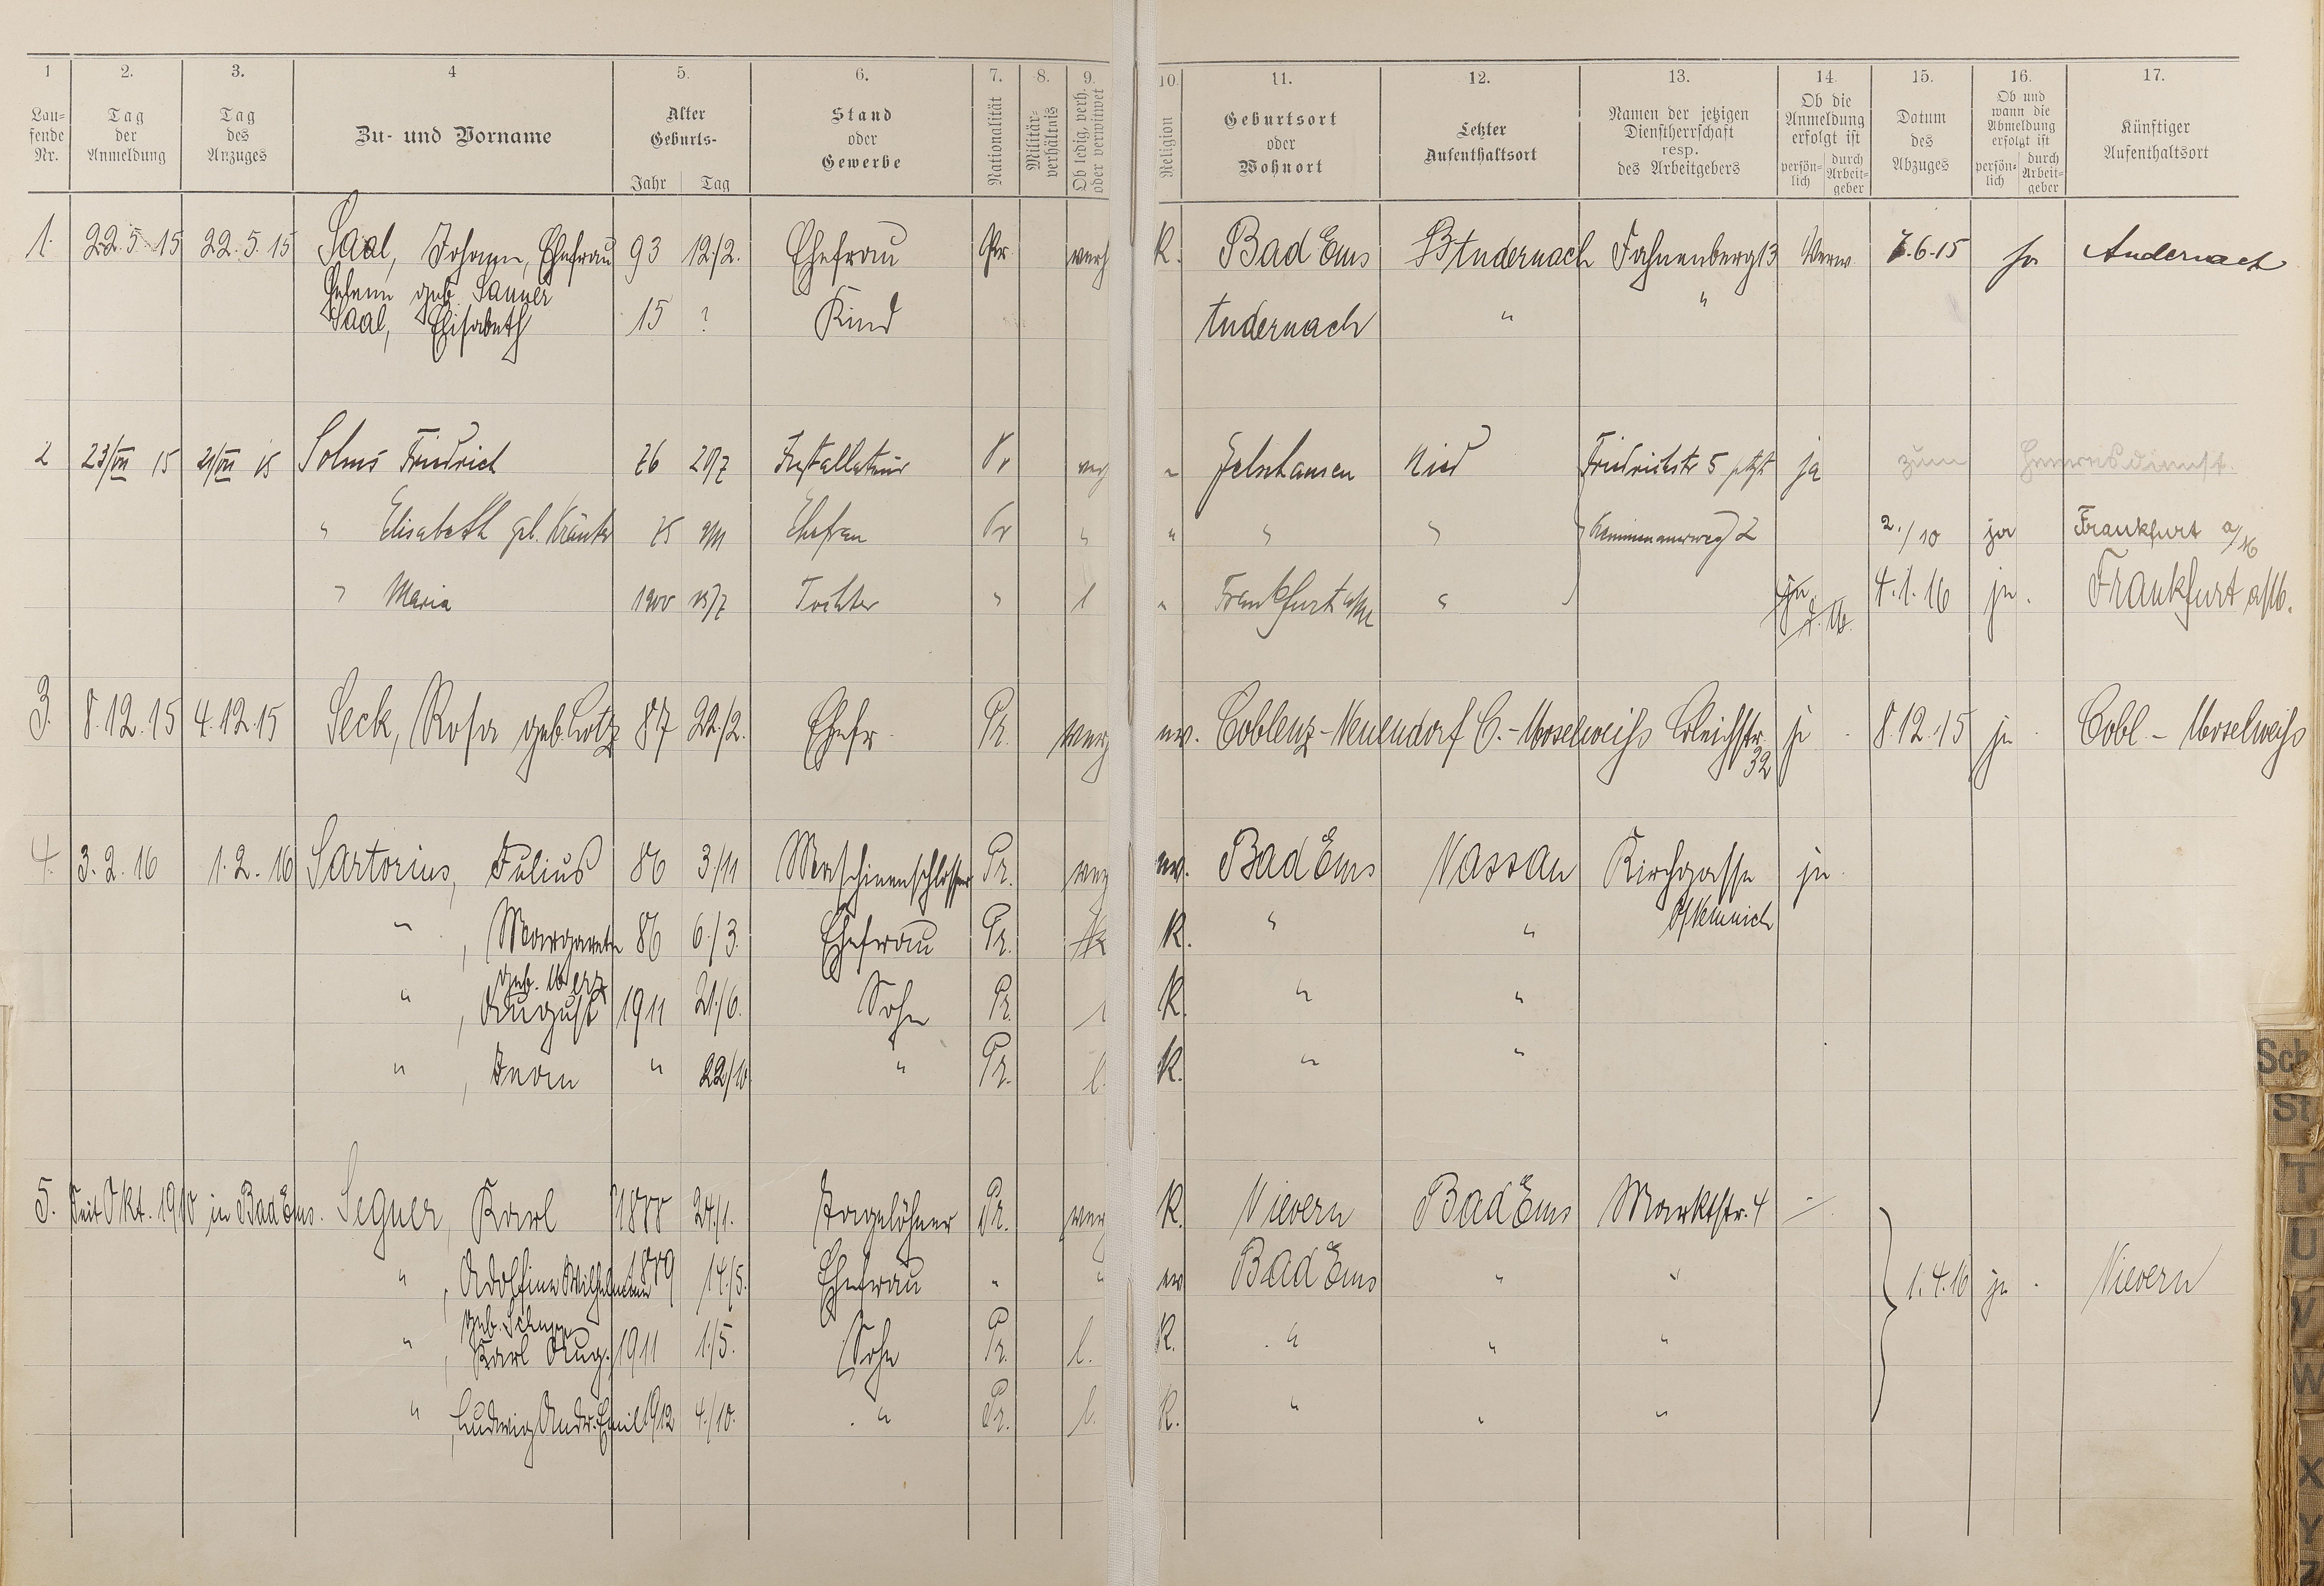 1 2. 3. 4 5. 6. 7. 8. 9. 10. 11. 12. 13. 14. 15. 16. 17.
Lau-
fende
Nr.
Tag
der
Anmeldung
Tag
des
Anzuges
Zu- und Vorname
Alter
Geburts-
Jahr Tag
Stand
oder
Gewerbe
Nationalität
Militär-
verhältnis
Ob ledig, verh.
oder verwitwet
Religion
Geburtsort
oder
Wohnort
Letzter
Aufenthaltsort
Namen der jetzigen
Dienstherrschaft
resp.
des Arbeitgebers
Ob die
Anmeldung
erfolgt ist
persön-
lich
durch
Arbeit-
geber
Datum
des
Abzuges
Ob und
wann die
Abmeldung
erfolgt ist
persön-
lich
durch
Arbeit-
geber
Künftiger
Aufenthaltsort
1. 22.5.15 22.5.15 Saal, Johann, Ehefrau 93 12/2. Ehefrau Pr. verh K. Bad Ems Andernach Fahnenberg 13 7.6.15 ja Andernach
geb. Sauner
Saal, Elisabeth 15 ? Kind Andernach " "
2 23/VII 15 21/VII 15 Solms Friedrich 76 20/7 Installateur Pr " Nied Friedrichstr 5 ja zum Heeresdienst.
" Elisabeth geb. 75 Ehefrau Pr " " " " 2 2./10 ja Frankfurt a/M
" Maria 1900 15/7 Tochter " l " Frankfurt a/M " ja 4.1.16 ja. Frankfurt a/M.
3. 8.12.15 4.12.15 Seck, Rosa geb. Lotz 87 22./2. Ehefr. Pr. verh ev. Coblenz-Neuendorf C.-Moselweiß Bleichstr. 32 ja 8.12.15 ja Cobl.-Moselweiß
4. 3.2.16 1.2.16 Sartorius, Julius 86 3/11 Maschinenschlosser Pr. verh ev. Bad Ems Nassau Kirchgasse ja
b/ Nemnich
" , Margarete 86 6./3. Ehefrau Pr. K. " "
geb. Merz
" , August 1911 21./6. Sohn Pr. l K. " "
" , " 22/10 " Pr. l. K. " "
5. Seit Okt. 1910 in Bad Ems. Segner, Karl 1888 24./1. Tagelöhner Pr. verh K. Nievern Bad Ems Marktstr. 4 -
" , Adolfine Wilhelmine 1889 14./5. Ehefrau " " ev Bad Ems " " 1.4.16 ja. Nievern
geb.
" , Karl Aug. 1911 1./5. Sohn Pr. l. K. " " "
" , Ludwig Andr. Emil 1912 4./10. " Pr. l. K. " " "
Sch
St
T
U
V
W
X
Y
Z